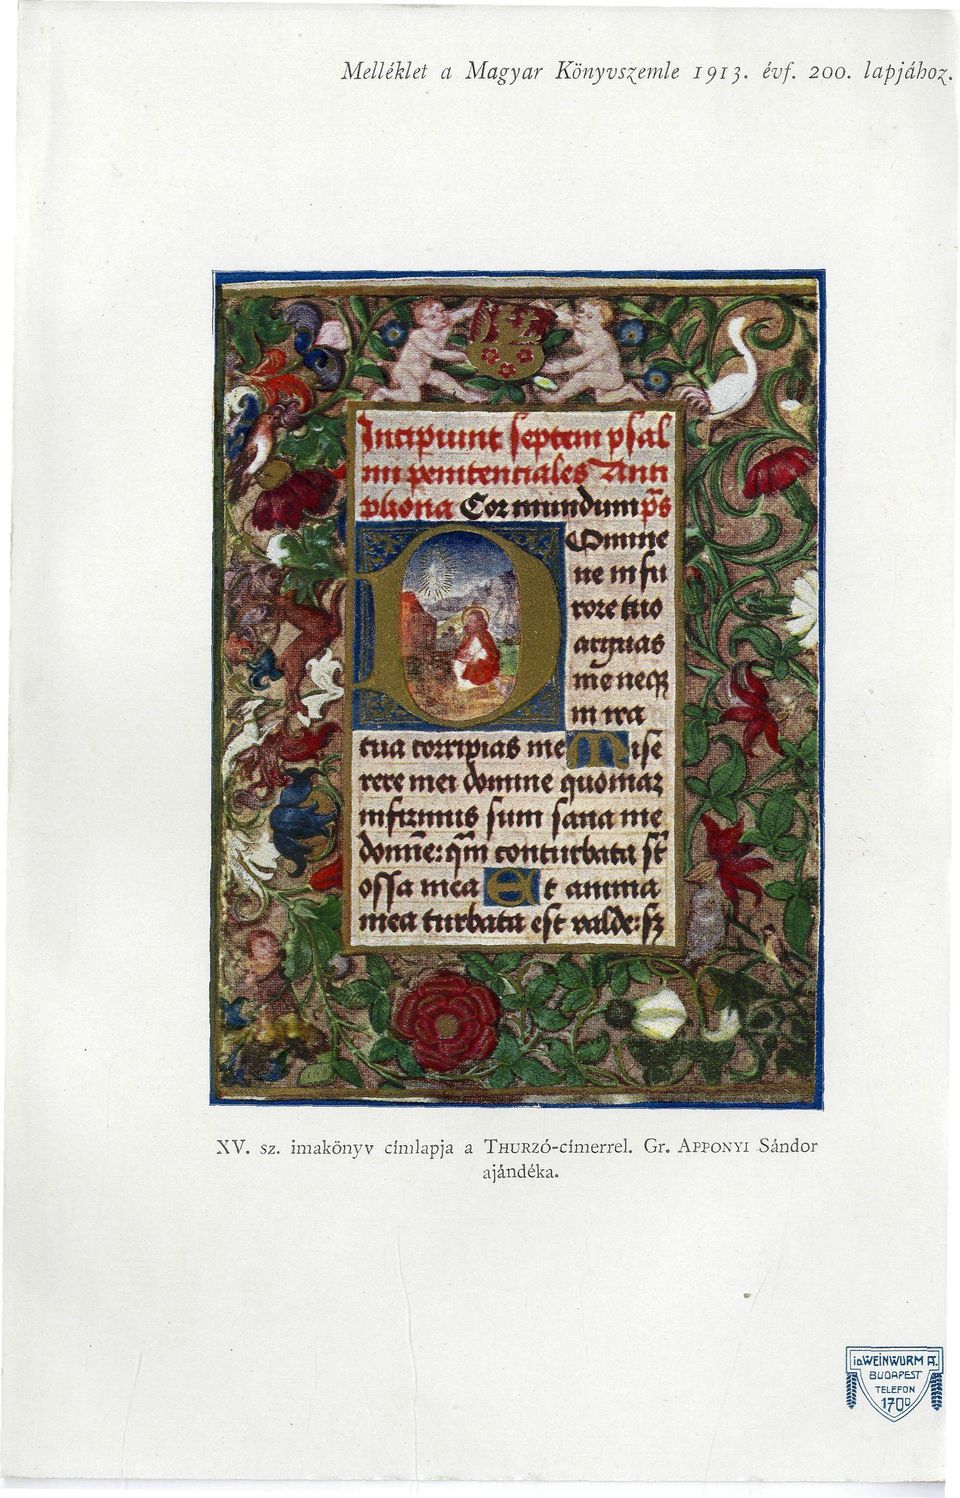 Melléklet a Magyar Könyvszemle 1913. évf. 200. lapjához.
Incipiunt septem psal
mi penitentiales Anti
phona Cor mundum ps̄
Domine
ne in fu
rore tuo
arguas
me neqꝫ
in ira
tua corripias me Mise
rere mei domine quoniaꝫ
infirmus sum sana me
domīe: qm̄ conturbata st̄
ossa mea Et anima
mea turbata est valde: sꝫ
XV. sz. imakönyv címlapja a THURZÓ-címerrel. Gr. APPONYI Sándor
ajándéka.
WEINWURM A.
BUDAPEST
TELEFON
1700